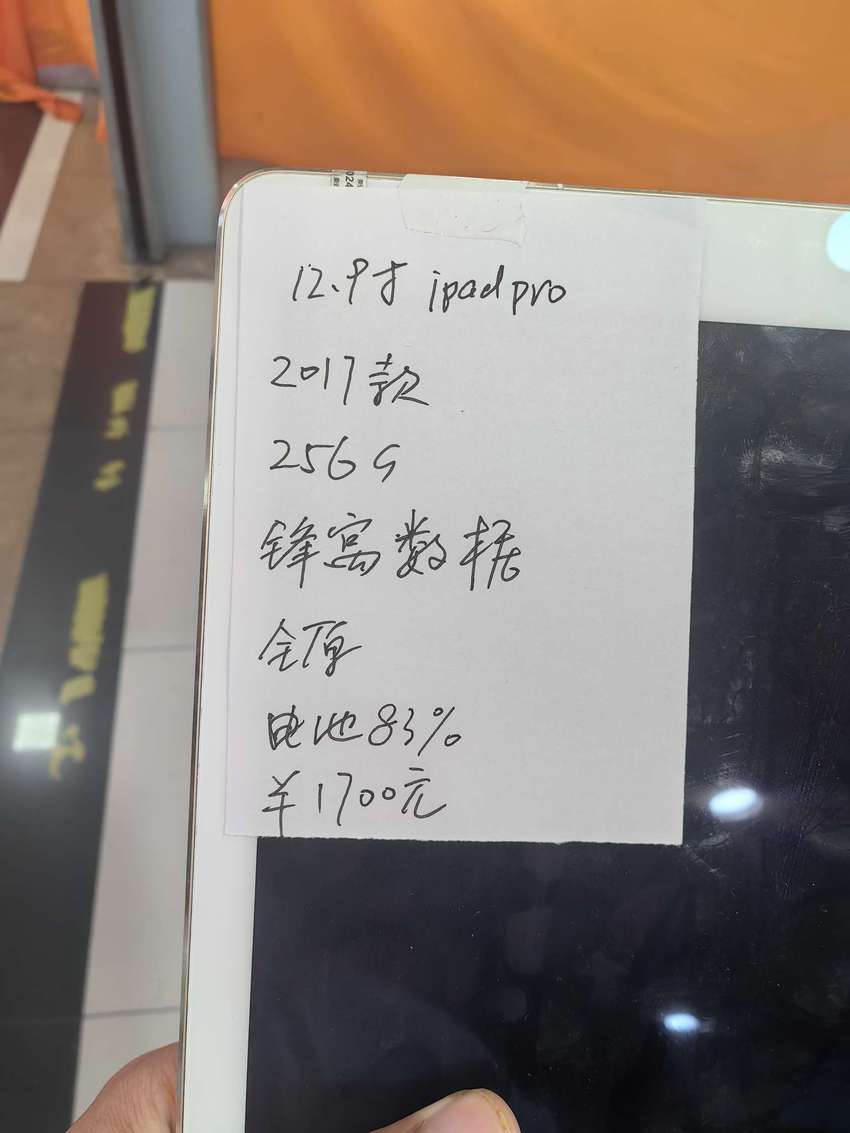 12.9寸 ipad pro
2017款
256G
蜂窝数据
全原
电池83%
¥1700元